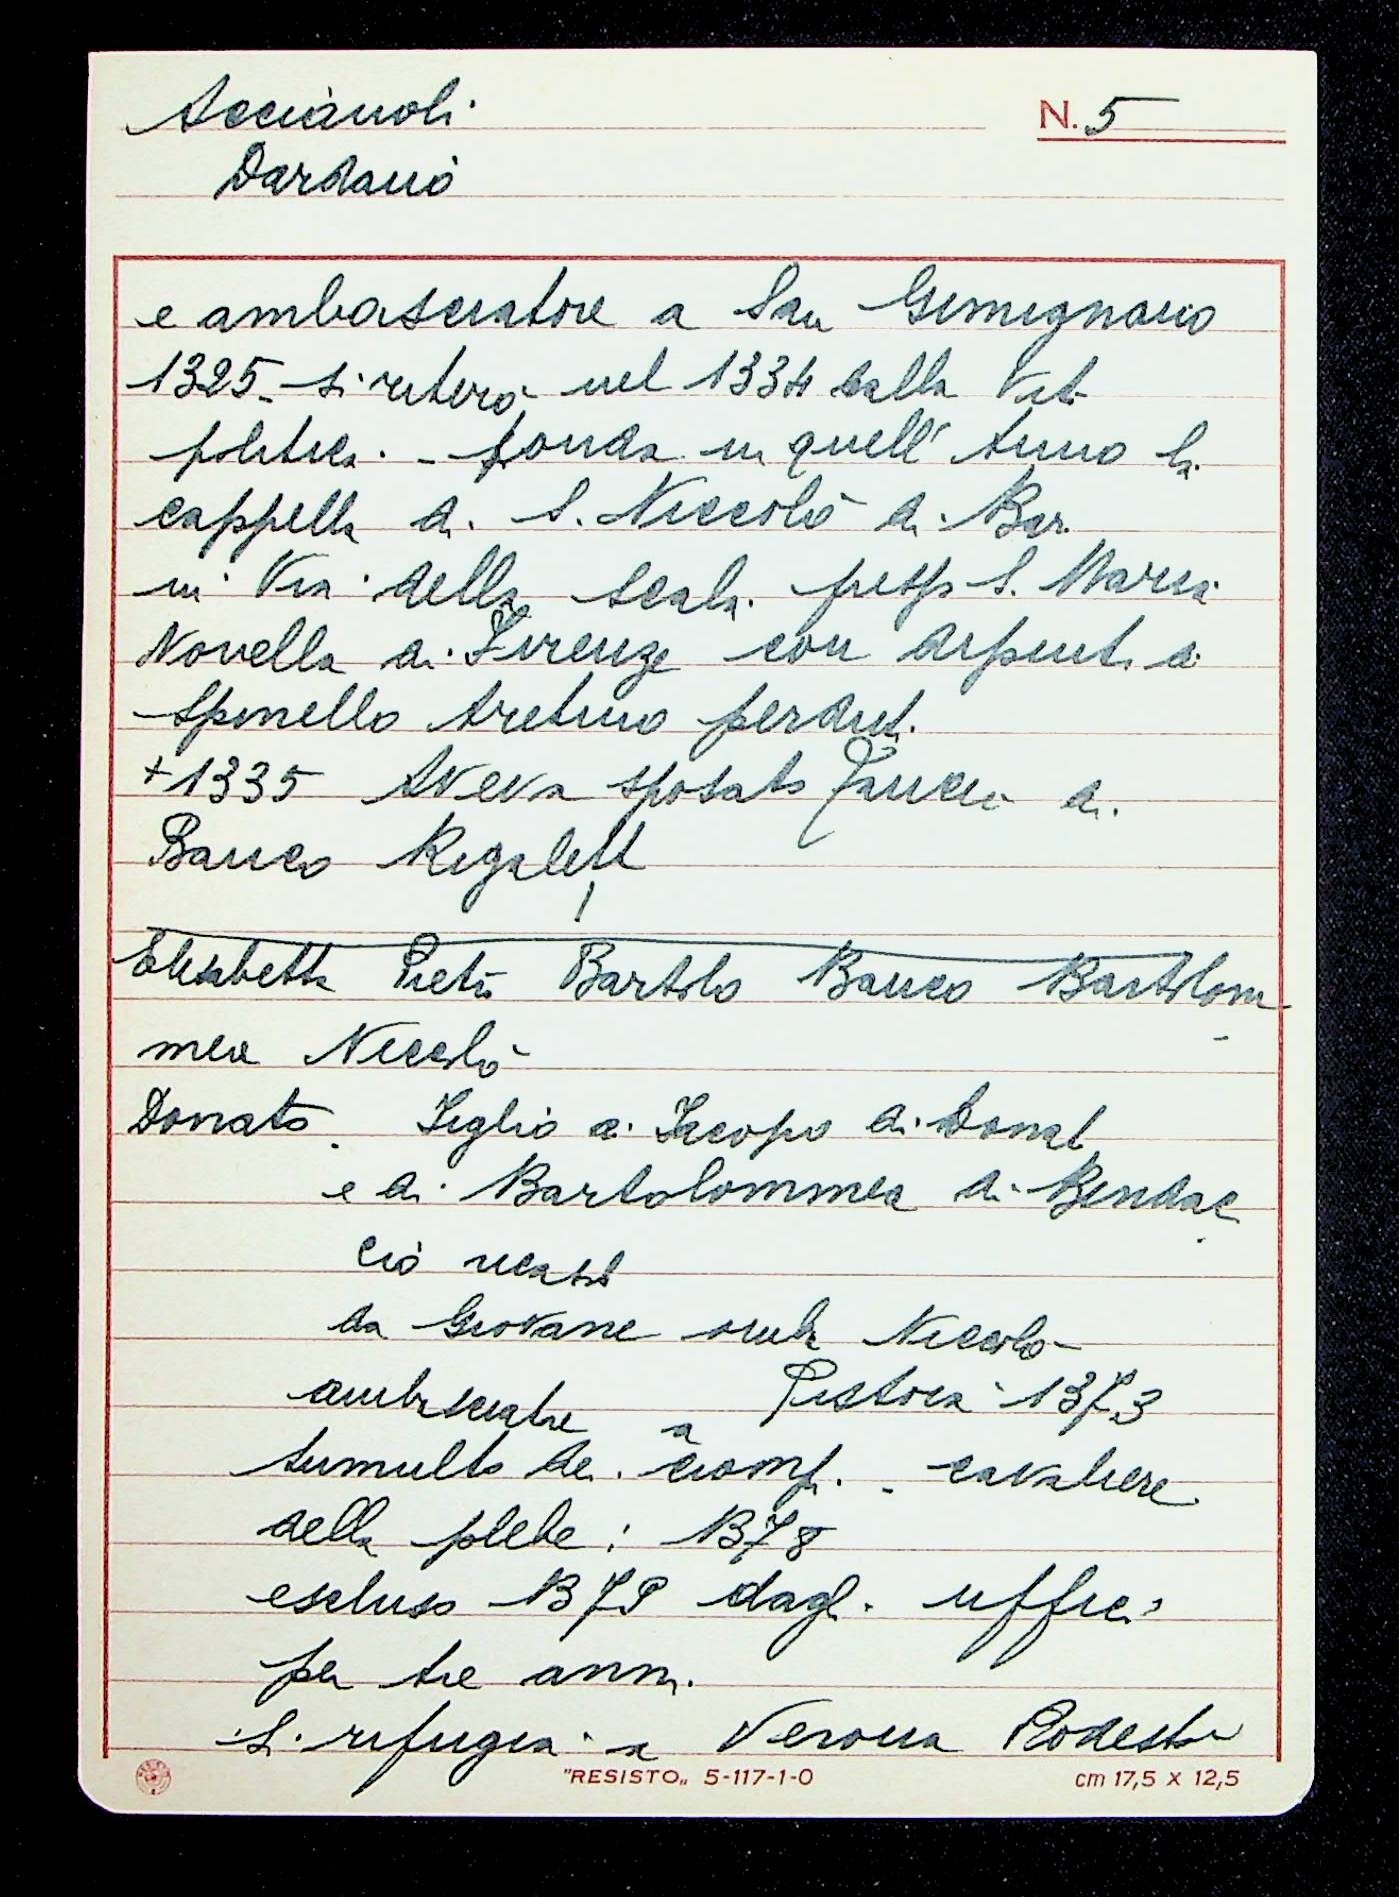 Acciaiuoli
N. 5
Dardano
e ambasciatore a San Gimignano
1325 - si ritirò nel 1334 dalla vita
politica. - fonda in quell' anno la
cappella di S. Niccolò di Bari
in Via della Scala presso S. Maria
Novella di Firenze con dipinti di
Spinello Aretino perduti.
+1335 Aveva sposato Tancia di
Banco Rigaletti
Elisabetta Pietro Bartolo Banco Bartolom
mea Niccolò
Donato. Figlio di Jacopo di Donato
e di Bartolommea di Bendac
cio
da Giovane Niccolò
ambasciatore a Pistoia 1373
tumulto dei ciompi - cavaliere
della plebe: 1378
escluso 1379 dagli uffici
per tre anni.
si rifugia a Verona Podestà
"RESISTO„ 5-117-1-0
cm 17,5 x 12,5